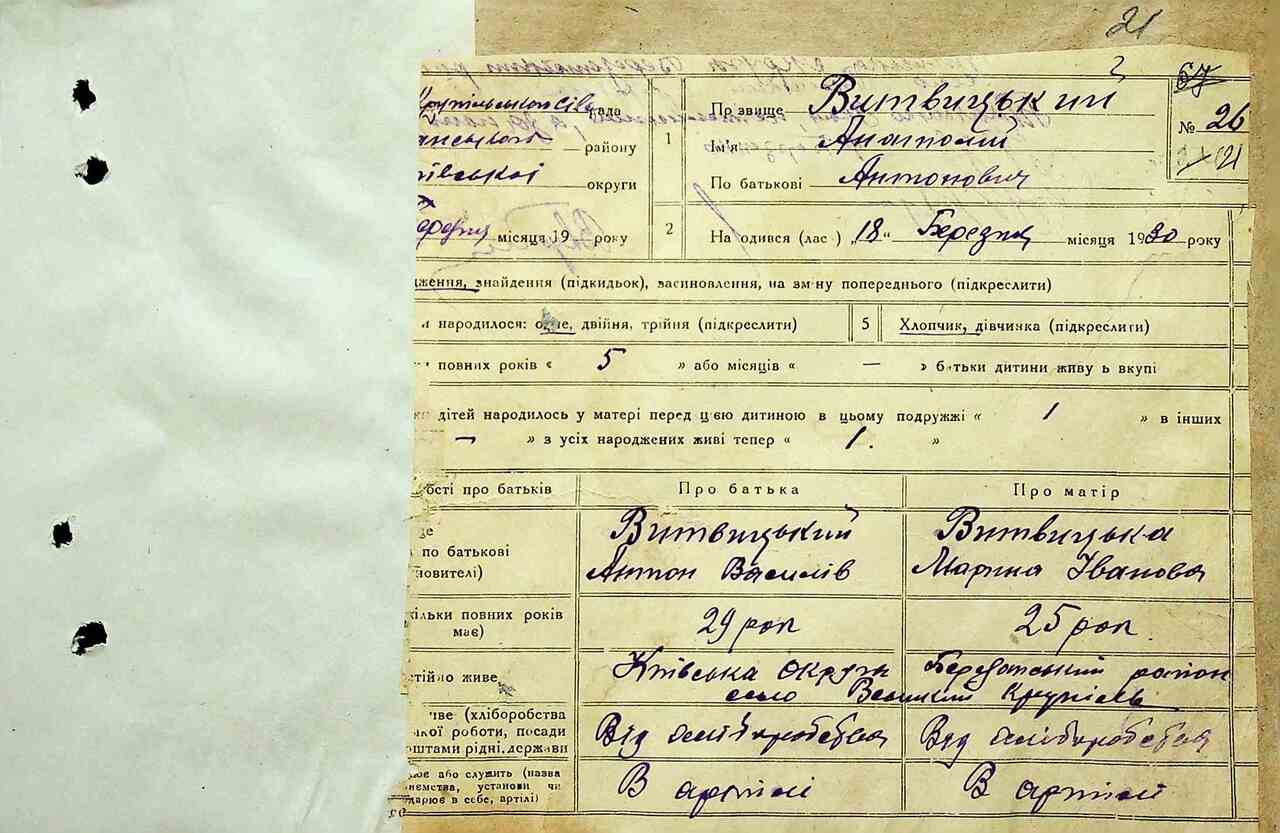 21
67
рада
1
Прізвище Витвицький
№ 26
району
Ім'я Анатолій
21
округи
По батькові Антонович
місяця 19 року
2
На одився (лас ) „18“ Березня місяця 1930 року
ження, знайдення (підкидьок), васиновлення, на зміну попереднього (підкреслити)
и народилося: одне, двійня, трійня (підкреслити)
5
Хлопчик, дівчинка (підкреслити)
повних років « 5 » або місяців « — » батьки дитини живуть вкупі
дітей народилось у матері перед цією дитиною в цьому подружжі « 1 » в інших
— » з усіх народжених живі тепер « 1. »
ості про батьків
Про батька
Про матір
по батькові
новителі)
Витвицький
Антон Василів
Витвицька
Марина Іванова
ільки повних років
має)
29 рок
25 рок
стійно живе
Київська округа
район
село Великий Крупіль
чве (хліборобства
кої роботи, посади
оштами рідні, держави
Від хліборобства
Від хліборобства
ює або служить (назва
ємства, установи чи
дарює в себе, артілі)
В артілі
В артілі